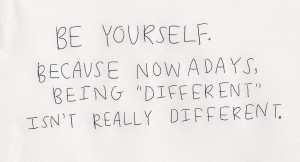 BE YOURSELF.
BECAUSE NOWADAYS,
BEING "DIFFERENT"
ISN'T REALLY DIFFERENT.